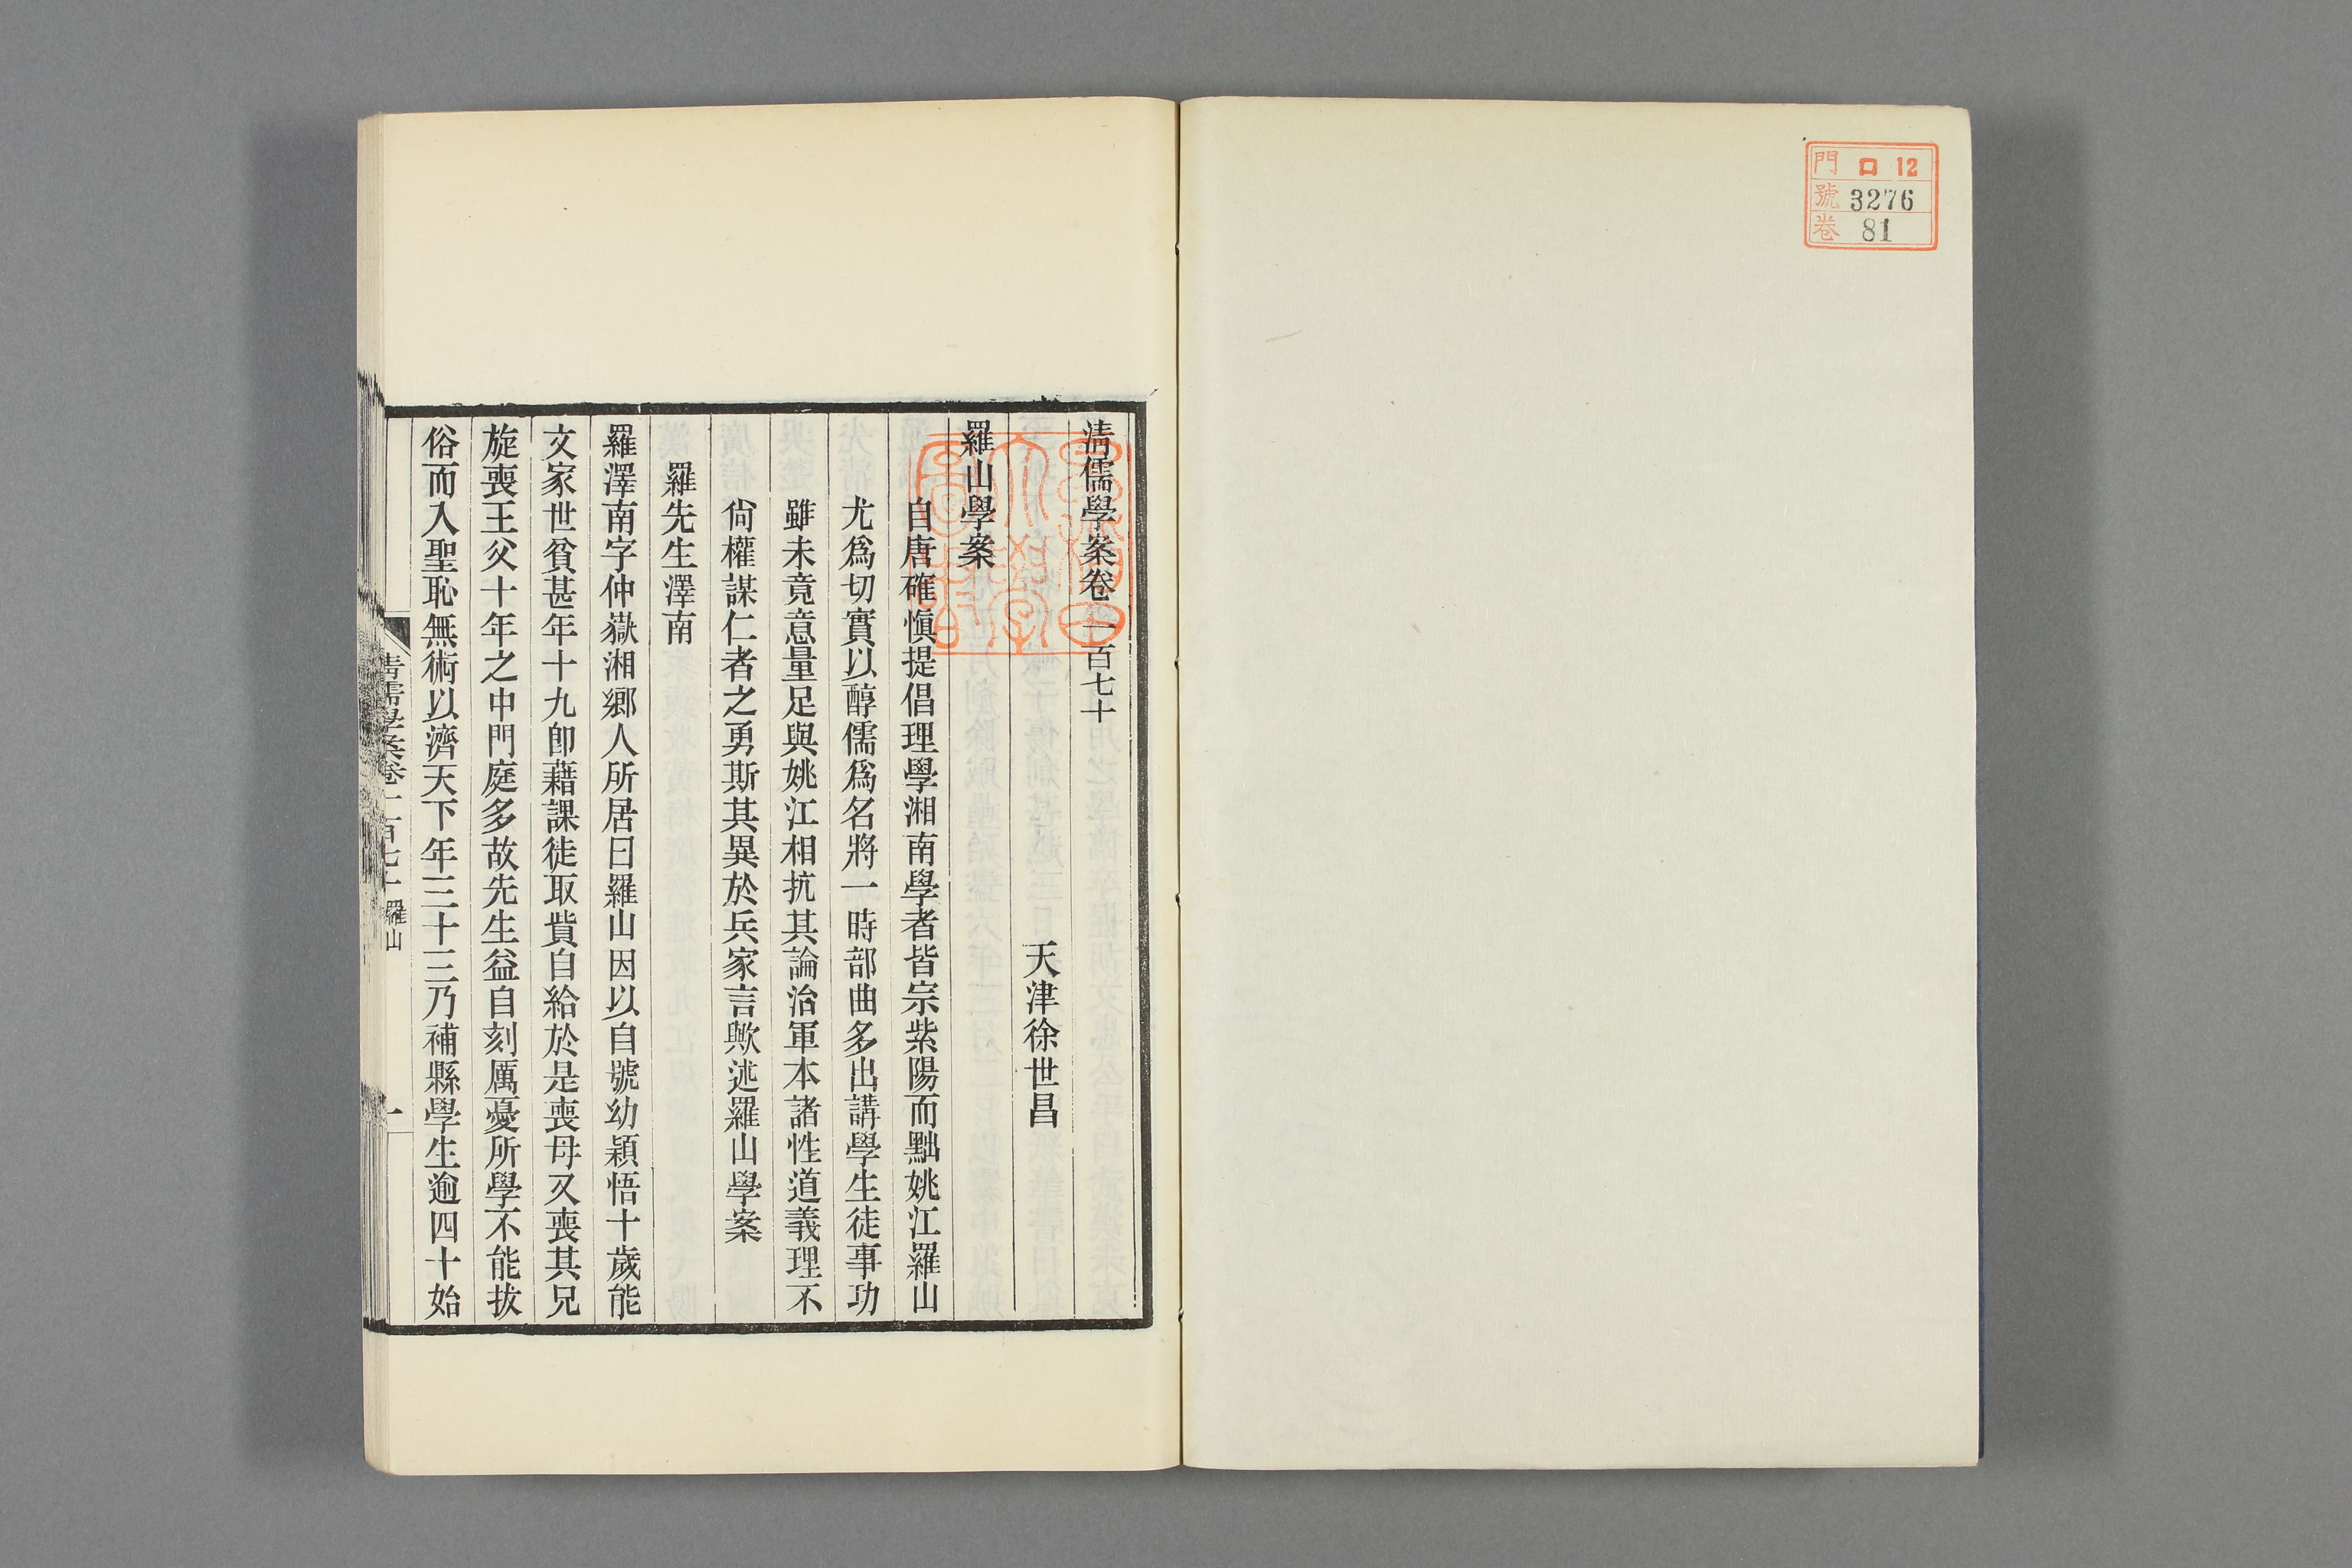 門 ロ 12
號 3276
卷 81
清儒學案卷一百七十
天津徐世昌
羅山學案
自唐確愼提倡理學湘南學者皆宗紫陽而黜姚江羅山
尤爲切實以醇儒爲名將一時部曲多出講學生徒事功
雖未竟意量足與姚江相抗其論治軍本諸性道義理不
尙權謀仁者之勇斯其異於兵家言歟述羅山學案
羅先生澤南
羅澤南字仲嶽湘鄉人所居曰羅山因以自號幼穎悟十歲能
文家世貧甚年十九卽藉課徒取貲自給於是喪母又喪其兄
旋喪王父十年之中門庭多故先生益自刻厲憂所學不能拔
俗而入聖恥無術以濟天下年三十三乃補縣學生逾四十始
清儒學案卷一百七十 羅山
一